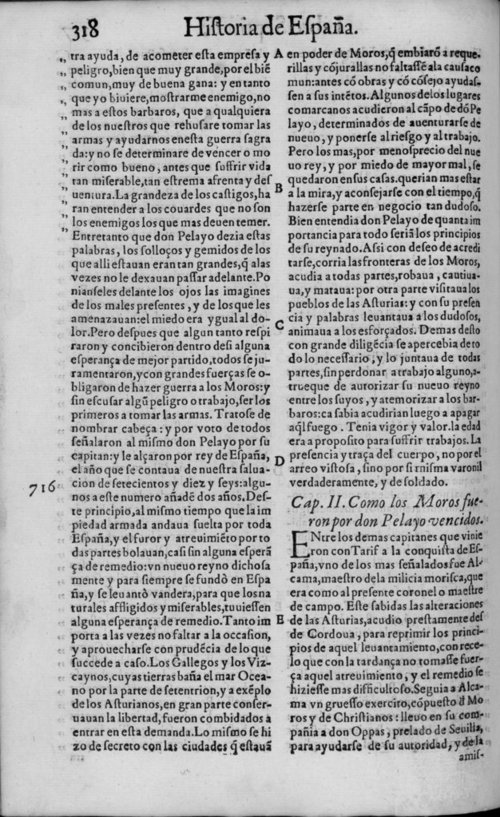 318 Historia de España.
tra ayuda, de acometer esta empresa y
peligro, bien que muy grande, por el biē
comun, muy de buena gana: y en tanto
que yo biuiere, mostrarme enemigo, no
mas a estos barbaros, que a qualquiera
de los nuestros que rehusare tomar las
armas y ayudarnos en esta guerra sagra
da: y no se determinare de vencer o mo
rir como bueno, antes que suffrir vida
tan miserable, tan estrema afrenta y des
uentura. La grandeza de los castigos, ha
ran entender a los couardes que no son
los enemigos los que mas deuen temer.
Entretanto que don Pelayo dezia estas
palabras, los solloços y gemidos de los
que alli estauan eran tan grandes, q̃ alas
vezes no le dexauan passar adelante. Po
nianseles delante los ojos las imagines
de los males presentes, y de los que les
amenazauan: el miedo era ygual al do-
lor. Pero despues que algun tanto respi
raron y concibieron dentro de si alguna
esperança de mejor partido, todos se ju-
ramentaron, y con grandes fuerças se o-
bligaron de hazer guerra a los Moros: y
sin escusar algũ peligro o trabajo, ser los
primeros a tomar las armas. Tratose de
nombrar cabeça: y por voto de todos
señalaron al mismo don Pelayo por su
capitan: y le alçaron por rey de España,
el año que se contaua de nuestra salua-
716
cion de setecientos y diez y seys: algu-
nos a este numero añadē dos años. Des-
te principio, al mismo tiempo que la im
piedad armada andaua suelta por toda
España, y el furor y atreuimiēto por to
das partes bolauan, casi sin alguna esperā
ça de remedio: vn nueuo reyno dichosa
mente y para siempre se fundò en Espa
ña, y se leuantò vandera, para que los na
turales affligidos y miserables, tuuiessen
alguna esperança de remedio. Tanto im
porta a las vezes no faltar a la occasion,
y aprouecharse con prudēcia de lo que
succede a caso. Los Gallegos y los Viz-
caynos, cuyas tierras baña el mar Ocea-
no por la parte de setentrion, y a exēplo
de los Asturianos, en gran parte conser-
uauan la libertad, fueron combidados a
entrar en esta demanda. Lo mismo se hi
zo de secreto con las ciudades q̃ estauā
A
en poder de Moros, q̃ embiarō a reque-
rillas y cōjurallas no faltassē a la causa co
mun: antes cō obras y cō cōsejo ayudas-
sen a sus intētos. Algunos de los lugares
comarcanos acudieron al cāpo de dō Pe
layo, determinados de auenturarse de
nueuo, y ponerse al riesgo y al trabajo.
Pero los mas, por menosprecio del nue
uo rey, y por miedo de mayor mal, se
quedaron en sus casas. querian mas estar
B
a la mira, y aconsejarse con el tiempo, q̃
hazerse parte en negocio tan dudoso.
Bien entendia don Pelayo de quanta im
portancia para todo seriā los principios
de su reynado. Assi con deseo de acredi
tarse, corria las fronteras de los Moros,
acudia a todas partes, robaua, cautiua-
ua, y mataua: por otra parte visitaua los
pueblos de las Asturias: y con su presen
C
cia y palabras leuantaua a los dudosos,
animaua a los esforçados. Demas desto
con grande diligēcia se apercebia de to
do lo necessario, y lo juntaua de todas
partes, sin perdonar a trabajo alguno, a-
trueque de autorizar su nueuo reyno
entre los suyos, y atemorizar a los bar-
baros: ca sabia acudirian luego a apagar
aq̃l fuego. Tenia vigor y valor. la edad
era a proposito para suffrir trabajos. La
D
presencia y traça del cuerpo, no por el
arreo vistosa, sino por si misma varonil
verdaderamente, y de soldado.
Cap. II. Como los Moros fue-
ron por don Pelayo vencidos.
ENtre los demas capitanes que vinie
ron con Tarif a la conquista de Es-
paña, vno de los mas señalados fue Al-
cama, maestro de la milicia morisca, que
era como al presente coronel o maestre
de campo. Este sabidas las alteraciones
E
de las Asturias, acudio prestamente des
de Cordoua, para reprimir los princi-
pios de aquel leuantamiento, con rece-
lo que con la tardança no tomasse fuer-
ça aquel atreuimiento, y el remedio se
hiziesse mas difficultoso. Seguia a Alca-
ma vn gruesso exercito, cōpuesto d̃ Mo
ros y de Christianos: lleuo en su com-
pañia a don Oppas, prelado de Seuilla,
para ayudarse de su autoridad, y de la
amis-